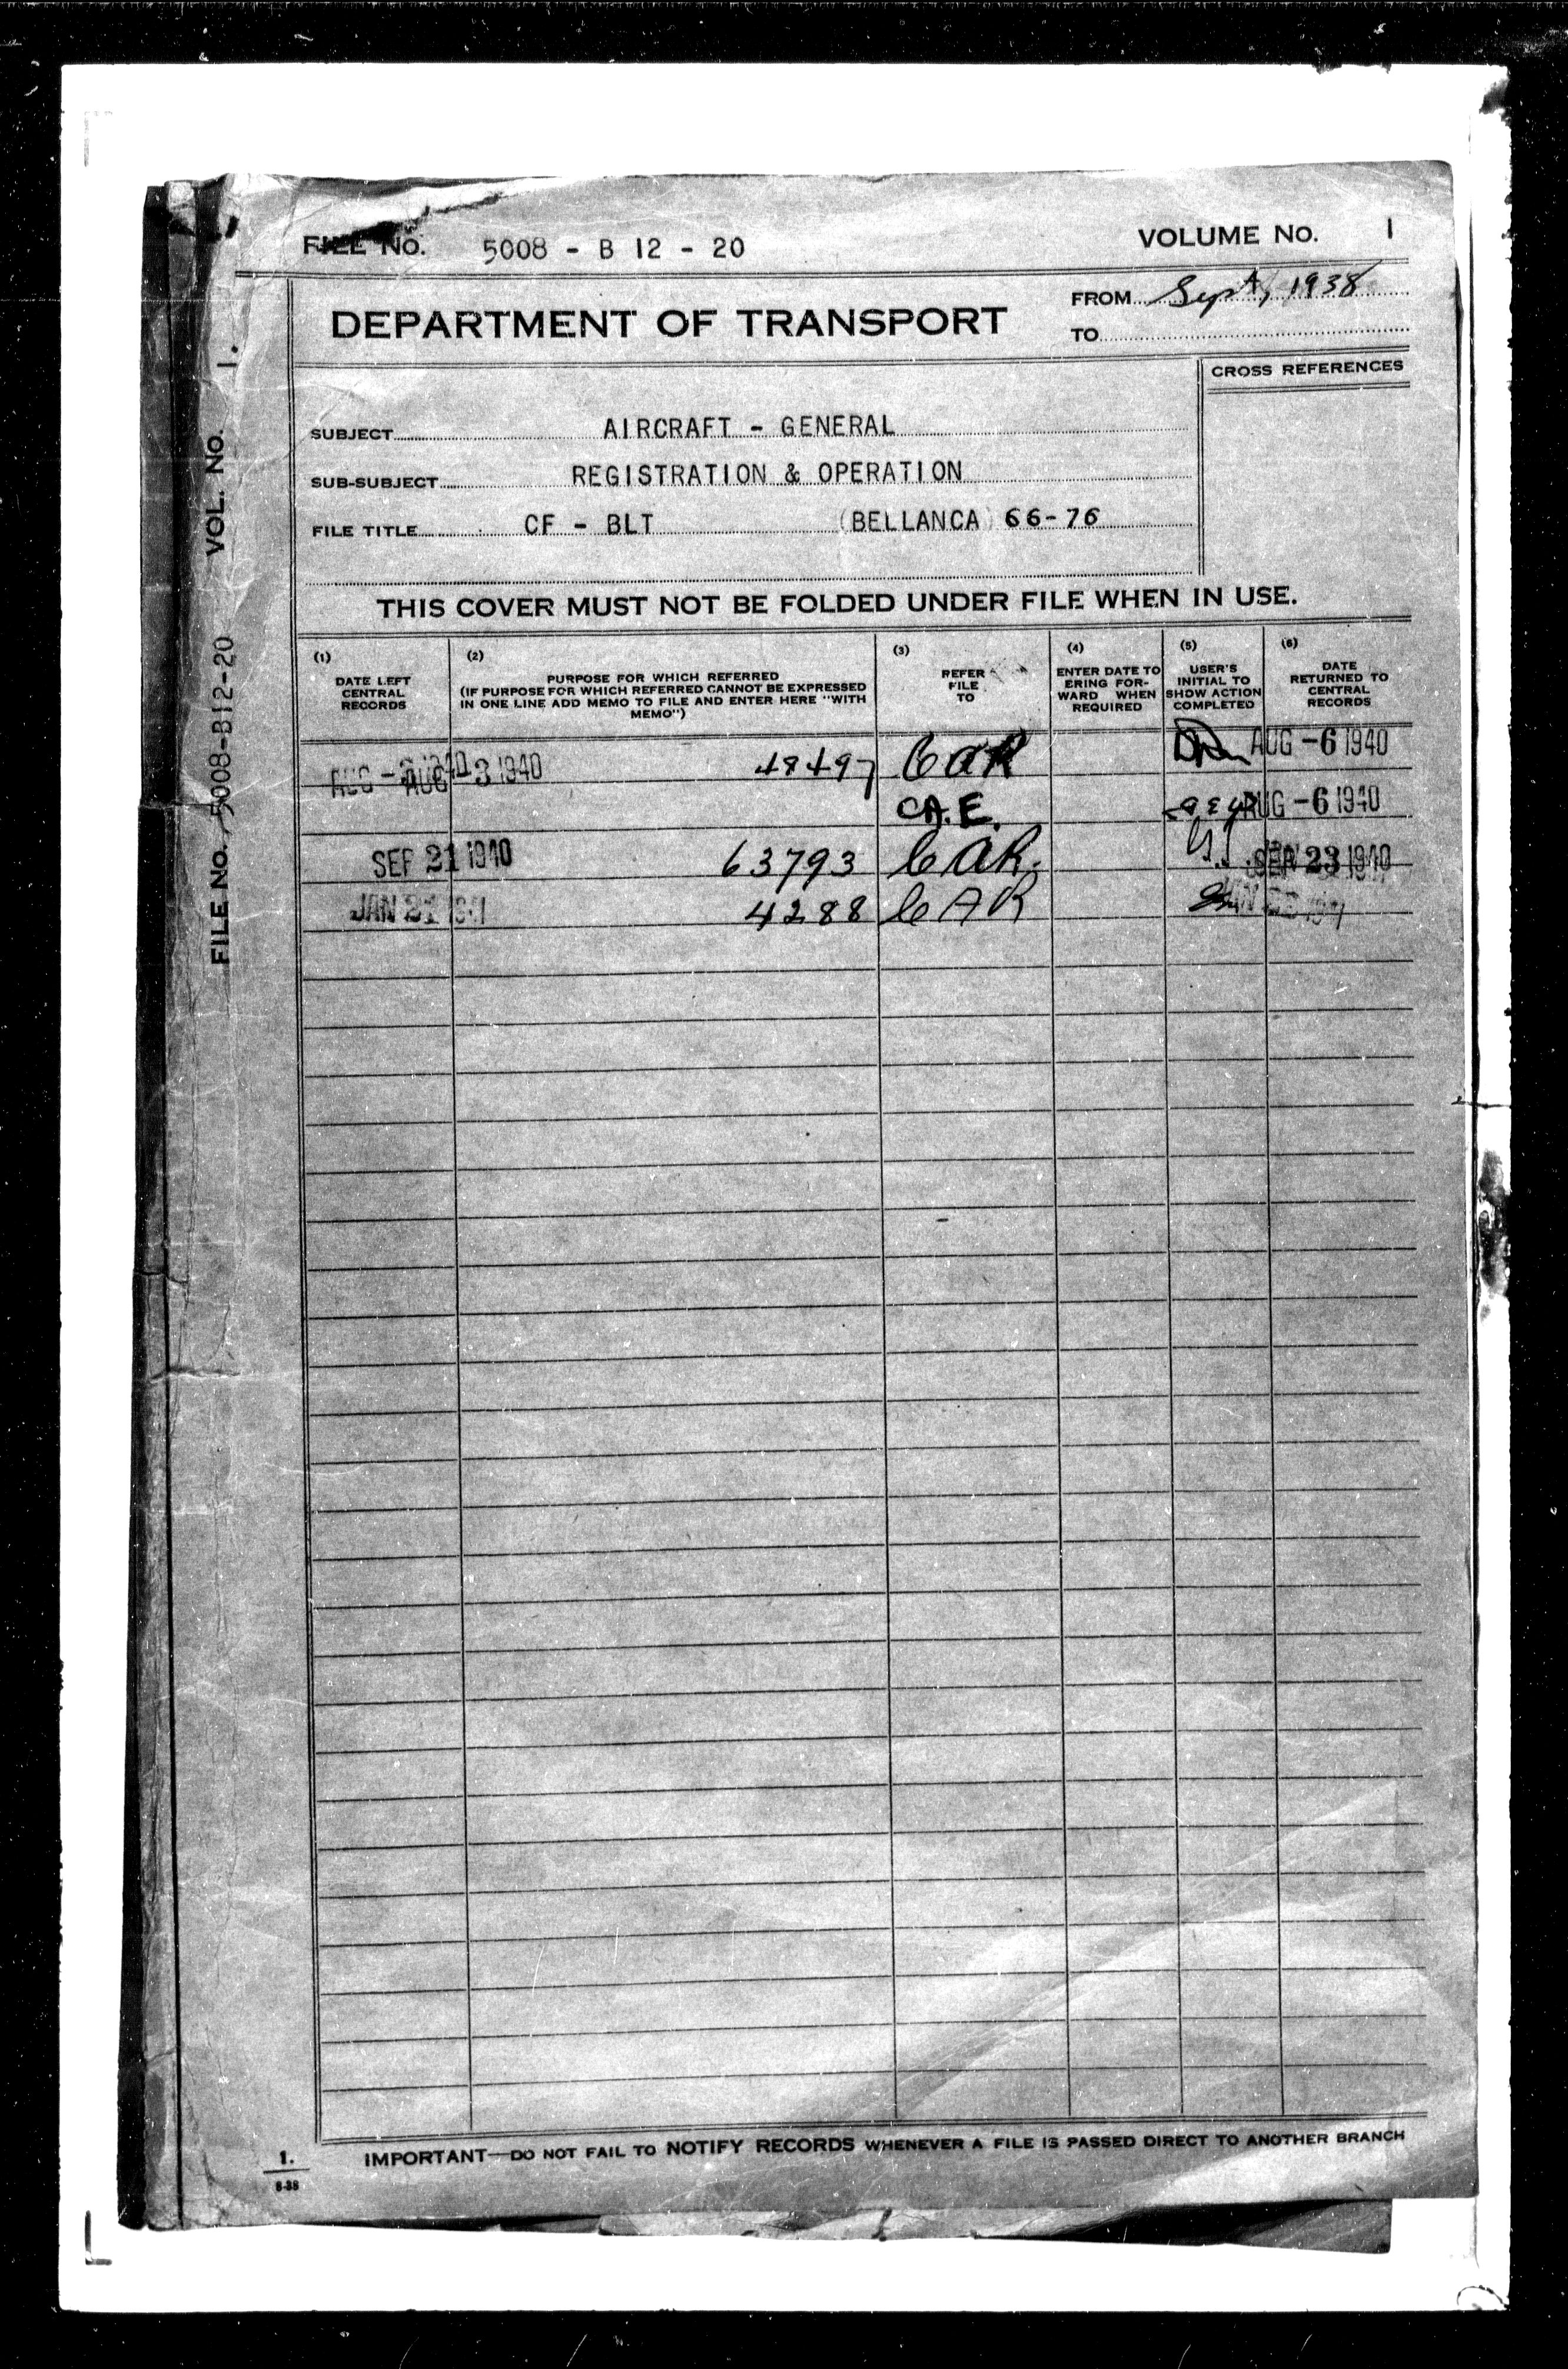 FILE NO. 5008 - B 12 - 20
VOLUME NO. 1
DEPARTMENT OF TRANSPORT
FROM Sept, 1938
TO
CROSS REFERENCES
SUBJECT AIRCRAFT - GENERAL
SUB-SUBJECT REGISTRATION & OPERATION
FILE TITLE CF - BLT (BELLANCA) 66-76
THIS COVER MUST NOT BE FOLDED UNDER FILE WHEN IN USE.
(1) DATE LEFT CENTRAL RECORDS
(2) PURPOSE FOR WHICH REFERRED
(IF PURPOSE FOR WHICH REFERRED CANNOT BE EXPRESSED
IN ONE LINE ADD MEMO TO FILE AND ENTER HERE "WITH
MEMO")
(3) REFER FILE TO
(4) ENTER DATE TO
ERING FOR-
WARD WHEN
REQUIRED
(5) USER'S
INITIAL TO
SHOW ACTION
COMPLETED
(6) DATE
RETURNED TO
CENTRAL
RECORDS
AUG - 3 1940 48497 CAR AUG -6 1940
C.A.E. AUG -6 1940
SEP 21 1940 63793 CAR. SEP 23 1940
JAN 21 1941 4288 CAR JAN 1941
IMPORTANT—DO NOT FAIL TO NOTIFY RECORDS WHENEVER A FILE IS PASSED DIRECT TO ANOTHER BRANCH
1.
6-38
FILE NO. 5008-B12-20 VOL. NO. 1.